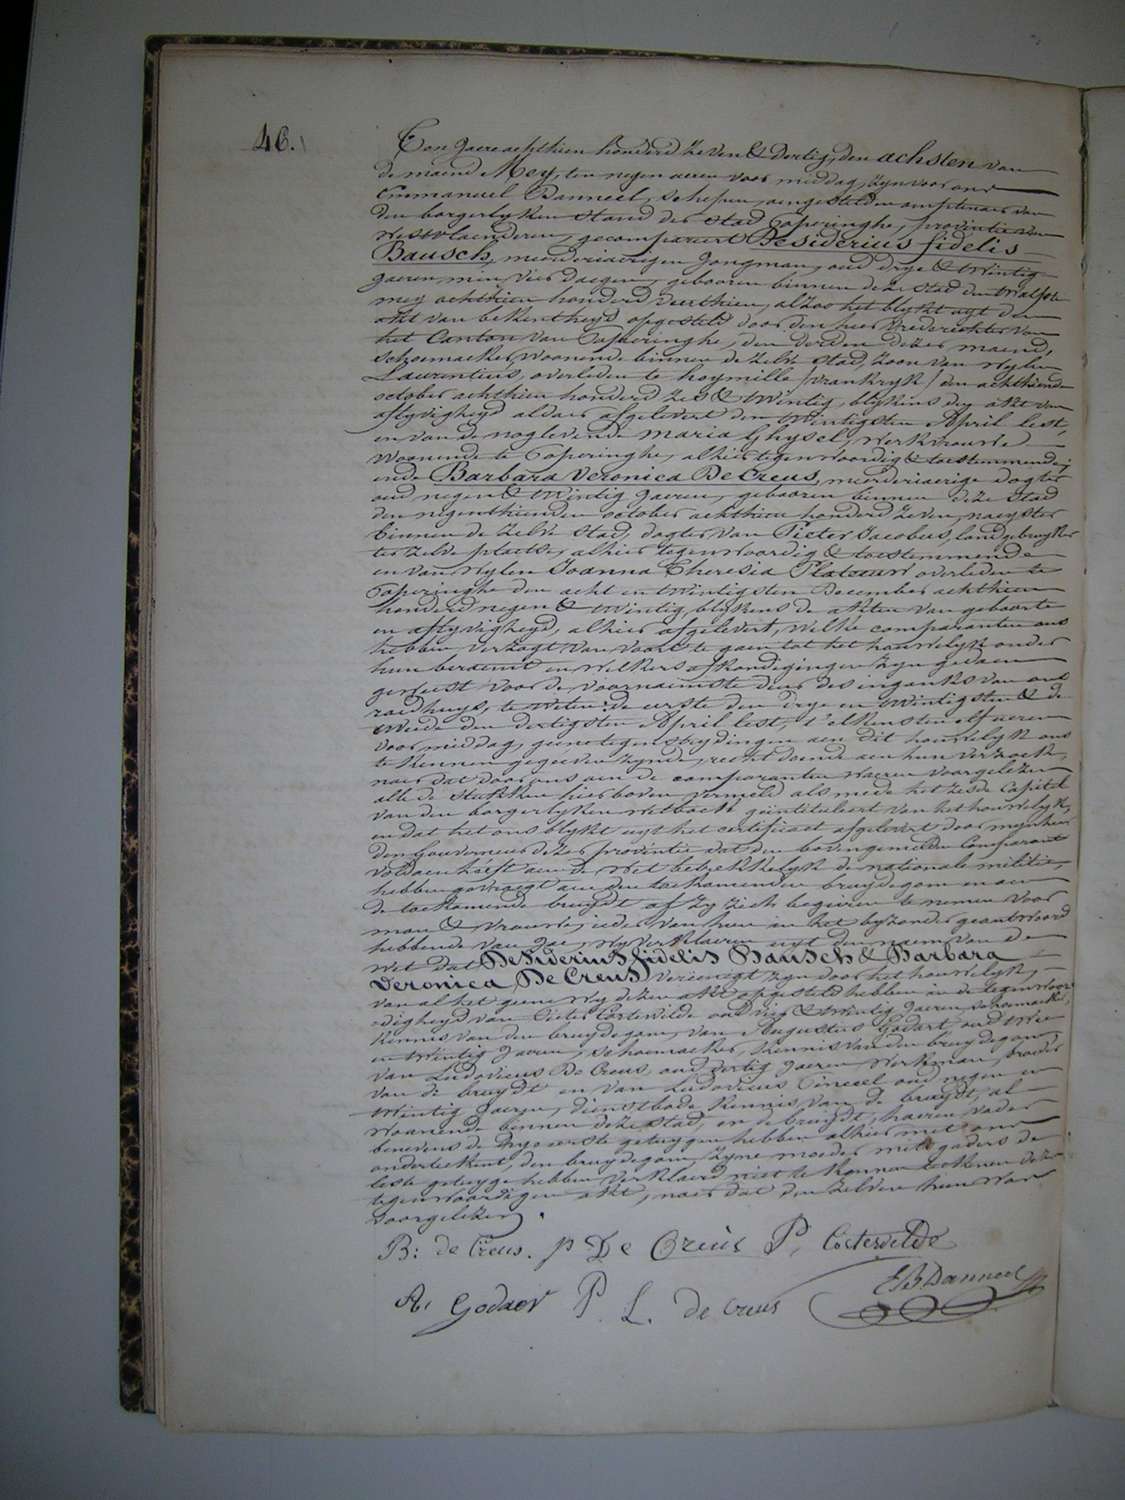 46.
Ten jaere achthien honderd zeven & dertig, den achsten van
de maend Mey, ten negen ueren voor middag, zyn voor ons
Emmanuel Banneel, schepen, aengestelden amptenaer van
den borgerlyken stand der stad Poperinghe, provintie van
Westvlaenderen, gecompareert Desiderius fidelis
Bausch, meerderjaerigen Jongman, oud drye & twintig
jaeren min vier daegen, gebooren binnen deze stad den twalfsten
mey achthien honderd veerthien, alzoo het blykt uyt den
akt van bekentheyd opgesteld door den heer vrederechter van
het Canton van Poperinghe, den derden dezer maend,
schoemaeker, woonende binnen de zelve stad, zoon van wylen
Laurentius, overleden te hoymille (vrankryk) den achthiende
october achthien honderd zes & twintig, blykens den akt van
aflyvigheyd aldaer afgelevert den twintigsten April lest,
en van de noglevende Maria Ghysel, werkvrouwe
woonende te Poperinghe, alhier tegenwoordig & toestemmende,
ende Barbara Veronica De Creus, meerderjaerige dogter
oud negen & twintig jaeren, gebooren binnen deze stad
den negenthienden october achthien honderd zeven, naeyster
binnen de zelve stad, dogter van Pieter Jacobus, landgebruyker
ter zelve plaetse, alhier tegenwoordig & toestemmende
en van wylen Joanna Theresia Plateeuw overleden te
Poperinghe den acht en twintigsten December achthien
honderd negen & twintig, blykens de akten van geboorte
en aflyvigheyd, alhier afgelevert, welke comparanten ons
hebben verzogt van voorts te gaen tot het houwelyk onder
hun beraemt en welkers afkondigingen zyn gedaen
geweest voor de voornaemste deur des ingangs van ons
raedhuys, te weten: de eerste den drye en twintigsten & de
tweede den dertigsten April lest, t'elkens ten elf ueren
voor middag, geene tegenstrydingen aen dit houwelyk ons
te kennen gegeeven zynde, recht doende aen hun verzoek,
naer dat door ons aen de comparanten waeren voorgelezen
alle de stukken hier boven vermeld als mede het zesde Capitel
van den borgerlyken wetboek geintituleert van het houwelyk,
en dat het ons blykt uyt het certificaet afgelevert door mynheer
den Gouverneur dezer provintie dat den bovengemelden comparant
voldaen heeft aen de wet betrekkelyk de nationale militie,
hebben gevraegt aen den toekomenden bruydegom en aen
de toekomende bruydt of zy zich begeeren te nemen voor
man & vrouwe, ieder van hun in het byzonder geantwoord
hebbende van Jae, wy verklaeren uyt den naem van de
wet dat Desiderius fidelis Bausch & Barbara
Veronica De Creus vereenigt zyn door het houwelyk,
van al het geene wy dezen akt opgesteld hebben in de tegenwoor-
digheyd van Pieter Costervilde oud vyf & twintig jaeren, schoemaeker,
kennis van den bruydegom, van Augustus Godart, oud twee
en twintig jaeren, schoemaeker, kennis van den bruydegom,
van Ludovicus De Creus oud dertig jaeren, werkman, broeder
van de bruydt en van Ludovicus Cineeel oud negen en
twintig jaeren, dienstbode kennis van de bruydt, al
woonende binnen deze stad, en de bruydt, haeren vader
benevens de drye eerste getuygen hebben alhier met ons
onderteekent, den bruydegom, zyne moeder mitsgaders de
leste getuyge hebben verklaerd niet te konnen teekenen dezen
tegenwoordigen akt, naer dat den zelven hun was
voorgelezen.
B: de Creus. p De Creus P, Costervelde
A, Godaer P. L. de Creus E. Banneel